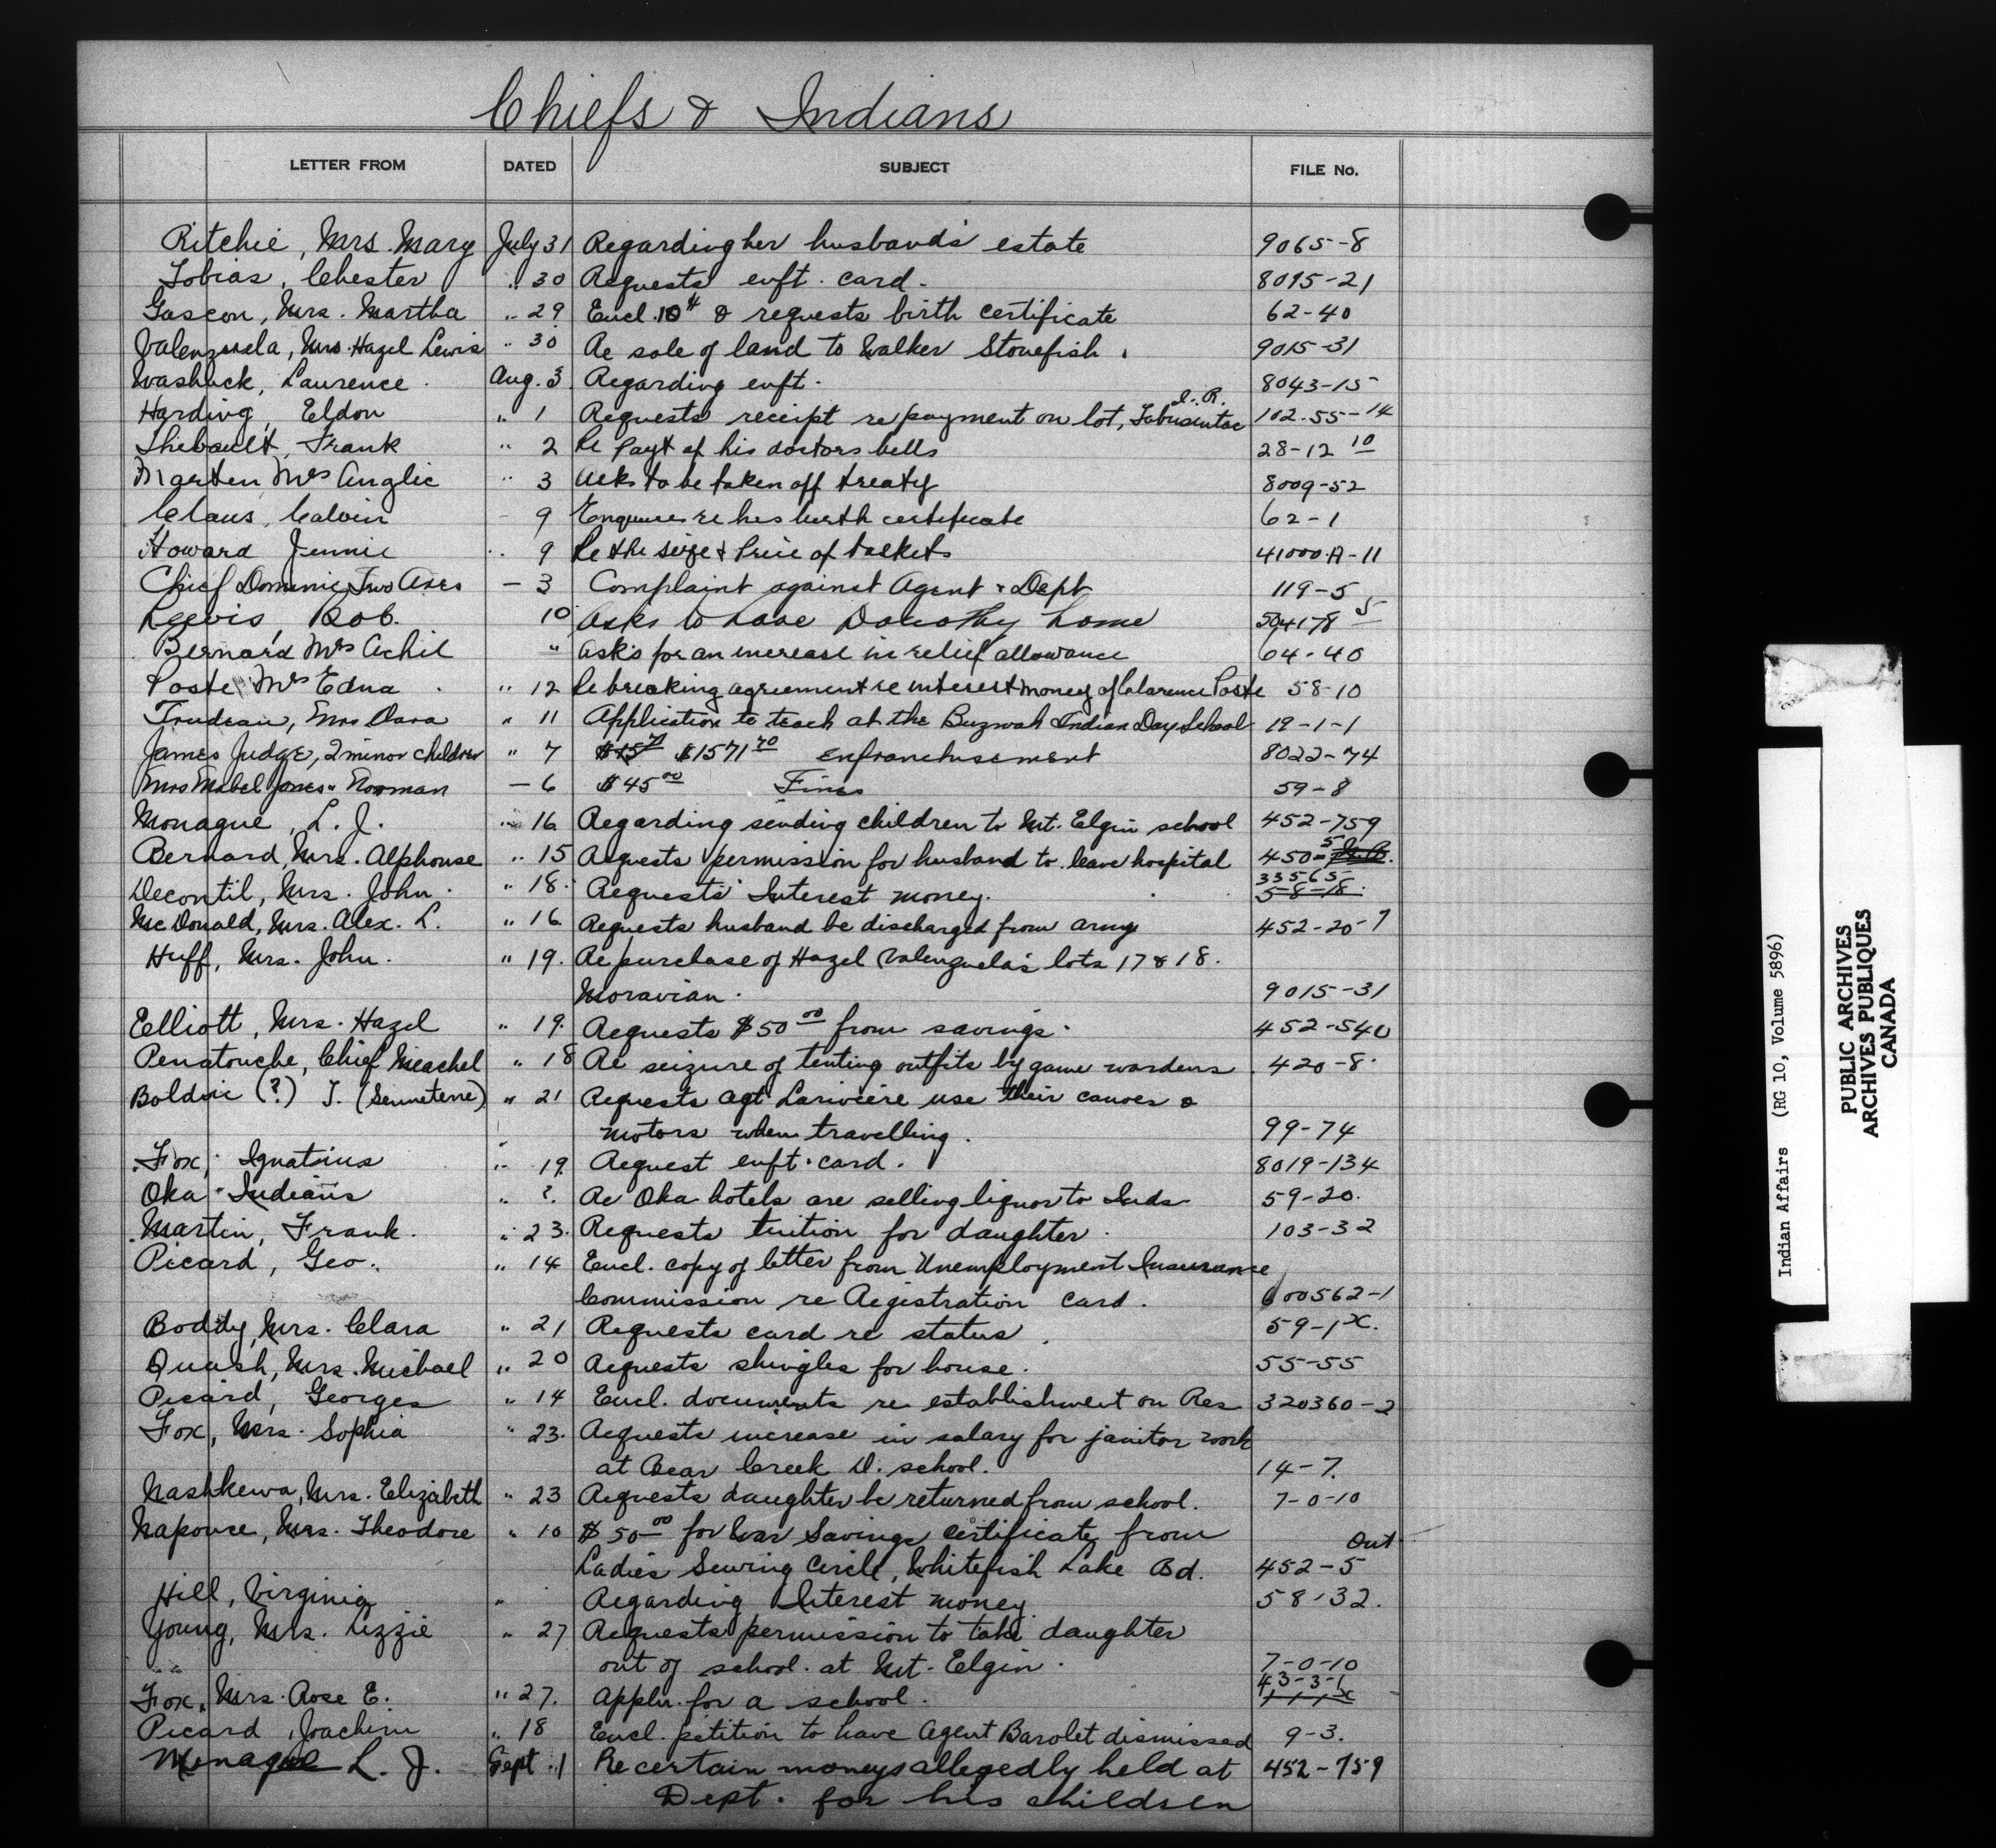 Chiefs & Indians
LETTER FROM DATED SUBJECT FILE No.
Ritchie, Mrs. Mary July 31 Regarding her husband's estate 9065-8
Tobias, Chester " 30 Requests enft. card. 8095-21
Gascon, Mrs. Martha " 29 Encl. 10¢ & requests birth certificate 62-40
Valenzuela, Mrs. Hazel Lewis " 30 Re sale of land to Walker Stonefish. 9015-31
Washuck, Laurence. Aug. 3 Regarding enft. 8043-15
Harding, Eldon " 1 Requests receipt re payment on lot, Tabusintac I.R. 102.55-14
Thibault, Frank " 2 Re Payt of his doctors bills 28-12 10
Marten Mrs Anglic " 3 Asks to be taken off treaty 8009-52
Claus, Calvin 9 Enquires re his birth certificate 62-1
Howard Jennie " 9 Re the size & Price of baskets 41000.A-11
Chief Dominic Two Axes - 3 Complaint against Agent & Dept 119-5
Bob. 10 Asks to have Dorothy home
Bernard Mrs Achil " asks for an increase in relief allowance 64-40
Poste, Mrs Edna " 12 Re breaking agreement re interest money of Clarence Poste 58-10
Trudeau, Mrs Dara " 11 Application to teach at the Buzwah Indian Day School 19-1-1
James Judge, 2 minor children " 7 $1571 70 enfranchisement 8022-74
Mrs Mabel Jones - Norman - 6 $45 00 Fines 59-8
Monague, L. J. " 16 Regarding sending children to Mt. Elgin school 452-759
Bernard, Mrs. Alphonse " 15 Requests permission for husband to leave hospital 450-5
Decontil, Mrs. John. " 18. Requests Interest money. 33565 5-8-18.
McDonald, Mrs. Alex. L. " 16 Requests husband be discharged from army 452-20-7
Huff, Mrs. John. " 19. Re purchase of Hazel Valenzuela's lots 17 & 18.
Moravian. 9015-31
Elliott, Mrs. Hazel " 19. Requests $50 00 from savings. 452-540
Penatouche, Chief Meachel " 18 Re seizure of tenting outfits by game wardens 420-8.
Boldric (?) J. (Senneterre) " 21 Requests agt Lariviere use their canoes &
motors when travelling. 99-74
Fox, Ignatius " 19. Request enft. card. 8019-134
Oka Indians " ?. Re Oka hotels are selling liquor to Inds 59-20.
Martin, Frank. " 23. Requests tuition for daughter. 103-32
Picard, Geo. " 14 Encl. copy of letter from Unemployment Insurance
Commission re Registration card. 600562-1
Boddy, Mrs. Clara " 21 Requests card re status. 59-1 X.
Quash, Mrs. Michael " 20 Requests shingles for house. 55-55
Picard, Georges " 14 Encl. documents re establishment on Res 320360-2
Fox, Mrs. Sophia " 23. Requests increase in salary for janitor work
at Bear Creek D. school. 14-7.
Nashkewa, Mrs. Elizabeth " 23 Requests daughter be returned from school. 7-0-10
Napouse, Mrs. Theodore " 10 $50 00 for War Savings certificate from Out
Ladies Sewing Circle, Whitefish Lake Bd. 452-5
Hill, Virginia " Regarding Interest money. 58-32.
Young, Mrs. Lizzie " 27 Requests permission to take daughter
out of school at Mt. Elgin. 7-0-10
Fox, Mrs. Rose E. " 27. Appln. for a school. 43-3-1
Picard, Joachim " 18 Encl. petition to have Agent Barolet dismissed 9-3.
Monague L. J. Sept. 1 Re certain moneys allegedly held at 452-759
Dept. for his children
Indian Affairs (RG 10, Volume 5896)
PUBLIC ARCHIVES
ARCHIVES PUBLIQUES
CANADA